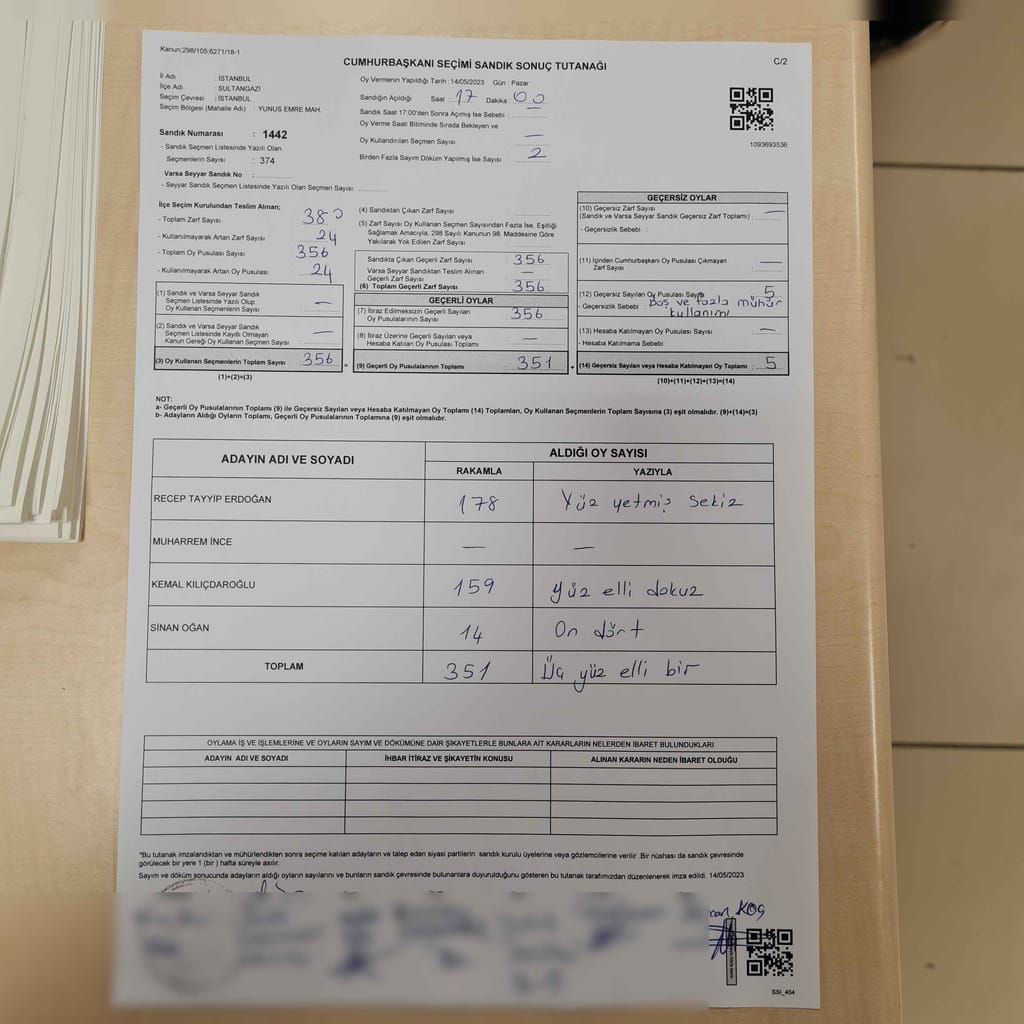 Kanun;298/105;6271/18-1
CUMHURBAŞKANI SEÇİMİ SANDIK SONUÇ TUTANAĞI
C/2
İl Adı : İSTANBUL
İlçe Adı : SULTANGAZİ
Seçim Çevresi : İSTANBUL
Seçim Bölgesi (Mahalle Adı) : YUNUS EMRE MAH.
Sandık Numarası : 1442
- Sandık Seçmen Listesinde Yazılı Olan
Seçmenlerin Sayısı : 374
Varsa Seyyar Sandık No :
- Seyyar Sandık Seçmen Listesinde Yazılı Olan Seçmen Sayısı:
Oy Vermenin Yapıldığı Tarih : 14/05/2023 Gün : Pazar
Sandığın Açıldığı Saat 17 Dakika 00
Sandık Saat 17:00'den Sonra Açımış İse Sebebi :
Oy Verme Saati Bitiminde Sırada Bekleyen ve
Oy Kullandırılan Seçmen Sayısı : —
Birden Fazla Sayım Döküm Yapılmış İse Sayısı : 2
1093693536
İlçe Seçim Kurulundan Teslim Alınan;
- Toplam Zarf Sayısı : 380
- Kullanılmayarak Artan Zarf Sayısı : 24
- Toplam Oy Pusulası Sayısı : 356
- Kullanılmayarak Artan Oy Pusulası : 24
(1) Sandık ve Varsa Seyyar Sandık
Seçmen Listesinde Yazılı Olup
Oy Kullanan Seçmenlerin Sayısı : —
(2) Sandık ve Varsa Seyyar Sandık
Seçmen Listesinde Kayıtlı Olmayan
Kanun Gereği Oy Kullanan Seçmen Sayısı : —
(3) Oy Kullanan Seçmenlerin Toplam Sayısı : 356
(1)+(2)=(3)
(4) Sandıktan Çıkan Zarf Sayısı :
(5) Zarf Sayısı Oy Kullanan Seçmen Sayısından Fazla İse, Eşitliği
Sağlamak Amacıyla; 298 Sayılı Kanunun 98. Maddesine Göre
Yakılarak Yok Edilen Zarf Sayısı :
Sandıkta Çıkan Geçerli Zarf Sayısı : 356
Varsa Seyyar Sandıktan Teslim Alınan
Geçerli Zarf Sayısı : —
(6) Toplam Geçerli Zarf Sayısı : 356
GEÇERLİ OYLAR
(7) İtiraz Edilmeksizin Geçerli Sayılan
Oy Pusulalarının Sayısı : 356
(8) İtiraz Üzerine Geçerli Sayılan veya
Hesaba Katılan Oy Pusulası Toplamı : —
(9) Geçerli Oy Pusulalarının Toplamı : 351
GEÇERSİZ OYLAR
(10) Geçersiz Zarf Sayısı
(Sandık ve Varsa Seyyar Sandık Geçersiz Zarf Toplamı) : —
- Geçersizlik Sebebi :
(11) İçinden Cumhurbaşkanı Oy Pusulası Çıkmayan
Zarf Sayısı : —
(12) Geçersiz Sayılan Oy Pusulası Sayısı 5
- Geçersizlik Sebebi : Boş ve fazla mühür
kullanımı
(13) Hesaba Katılmayan Oy Pusulası Sayısı : —
- Hesaba Katılmama Sebebi :
(14) Geçersiz Sayılan veya Hesaba Katılmayan Oy Toplamı : 5
(10)+(11)+(12)+(13)=(14)
NOT:
a- Geçerli Oy Pusulalarının Toplamı (9) ile Geçersiz Sayılan veya Hesaba Katılmayan Oy Toplamı (14) Toplamları, Oy Kullanan Seçmenlerin Toplam Sayısına (3) eşit olmalıdır. (9)+(14)=(3)
b- Adayların Aldığı Oyların Toplamı, Geçerli Oy Pusulalarının Toplamına (9) eşit olmalıdır.
ADAYIN ADI VE SOYADI
ALDIĞI OY SAYISI
RAKAMLA YAZIYLA
RECEP TAYYİP ERDOĞAN 178 Yüz yetmiş sekiz
MUHARREM İNCE — —
KEMAL KILIÇDAROĞLU 159 yüz elli dokuz
SİNAN OĞAN 14 On dört
TOPLAM 351 Üç yüz elli bir
OYLAMA İŞ VE İŞLEMLERİNE VE OYLARIN SAYIM VE DÖKÜMÜNE DAİR ŞİKAYETLERLE BUNLARA AİT KARARLARIN NELERDEN İBARET BULUNDUKLARI
ADAYIN ADI VE SOYADI İHBAR İTİRAZ VE ŞİKAYETİN KONUSU ALINAN KARARIN NEDEN İBARET OLDUĞU
*Bu tutanak imzalandıktan ve mühürlendikten sonra seçime katılan adayların ve talep eden siyasi partilerin sandık kurulu üyelerine veya gözlemcilerine verilir. Bir nüshası da sandık çevresinde
görülecek bir yere 1 (bir ) hafta süreyle asılır.
Sayım ve döküm sonucunda adayların aldığı oyların sayılarını ve bunların sandık çevresinde bulunanlara duyurulduğunu gösteren bu tutanak tarafımızdan düzenlenerek imza edildi. 14/05/2023
can KOÇ
SSİ_404